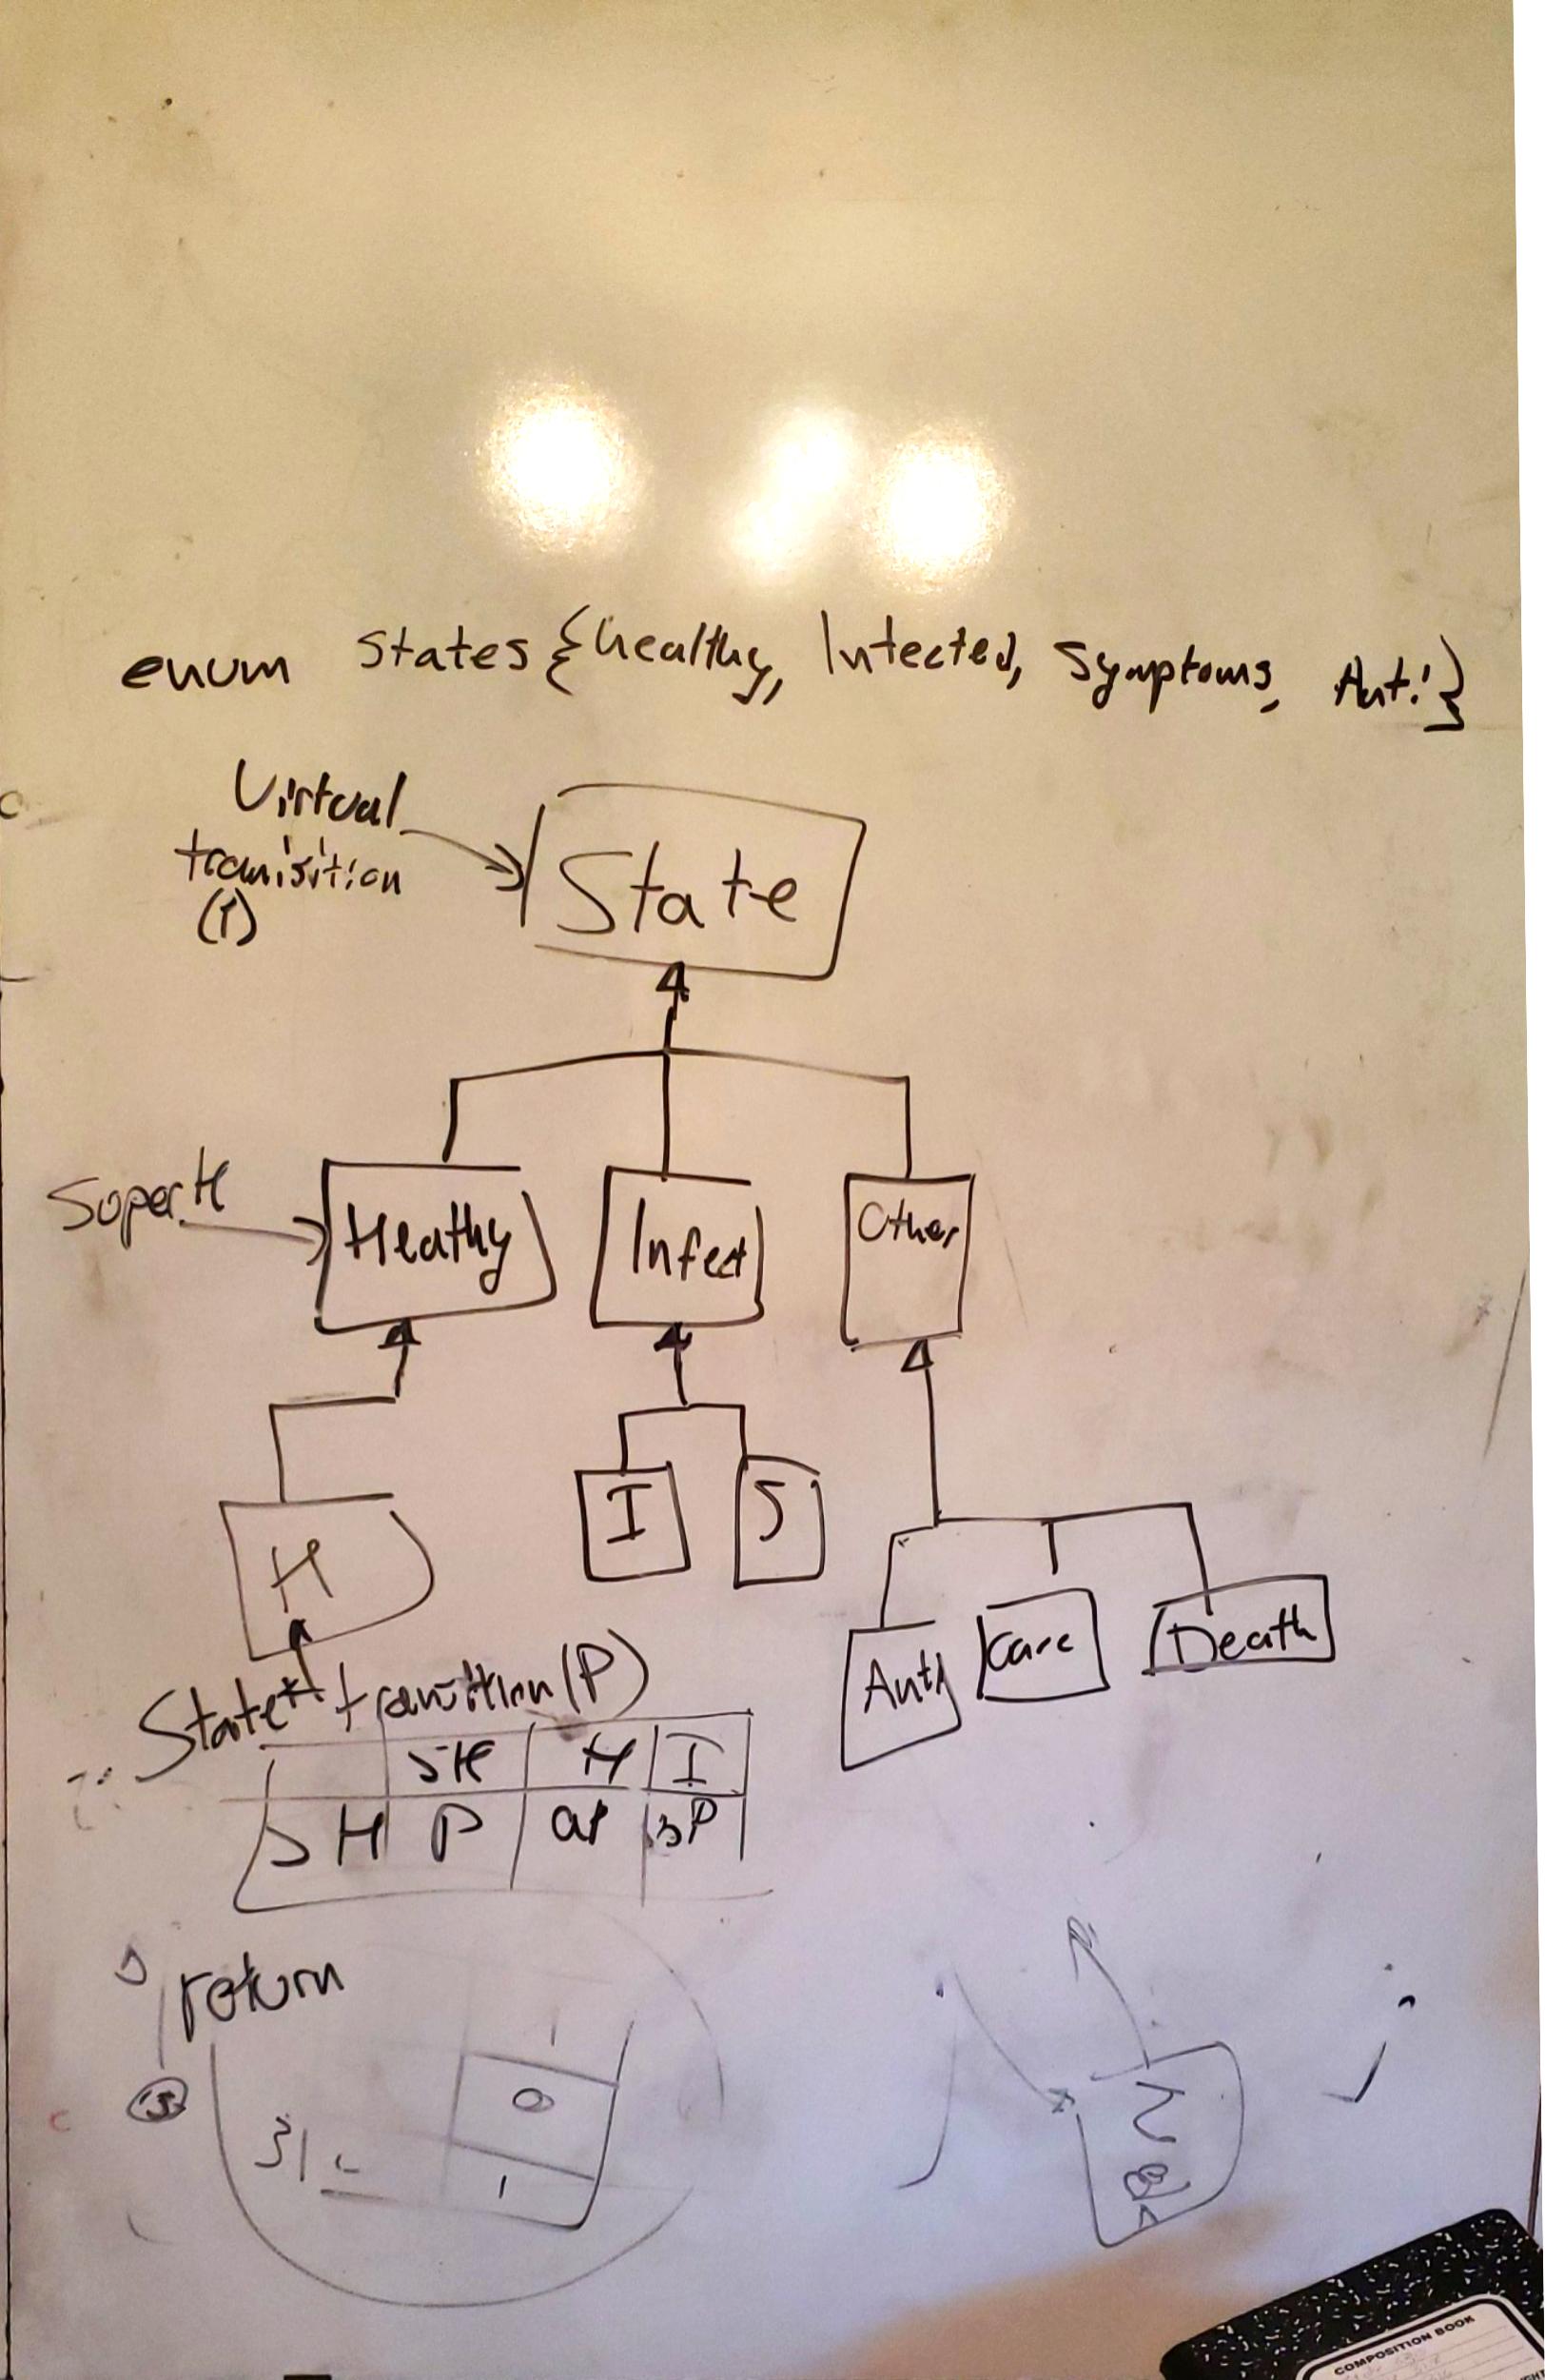 enum States{healthy, Infected, Symptoms, Anti}
Virtual
tranisition
(1)
State
Super H
Heathy
Infect
Other
H
I
S
Anti
Care
Death
State* transition(P)
SH H I
SH P
return
0
1
COMPOSITION BOOK